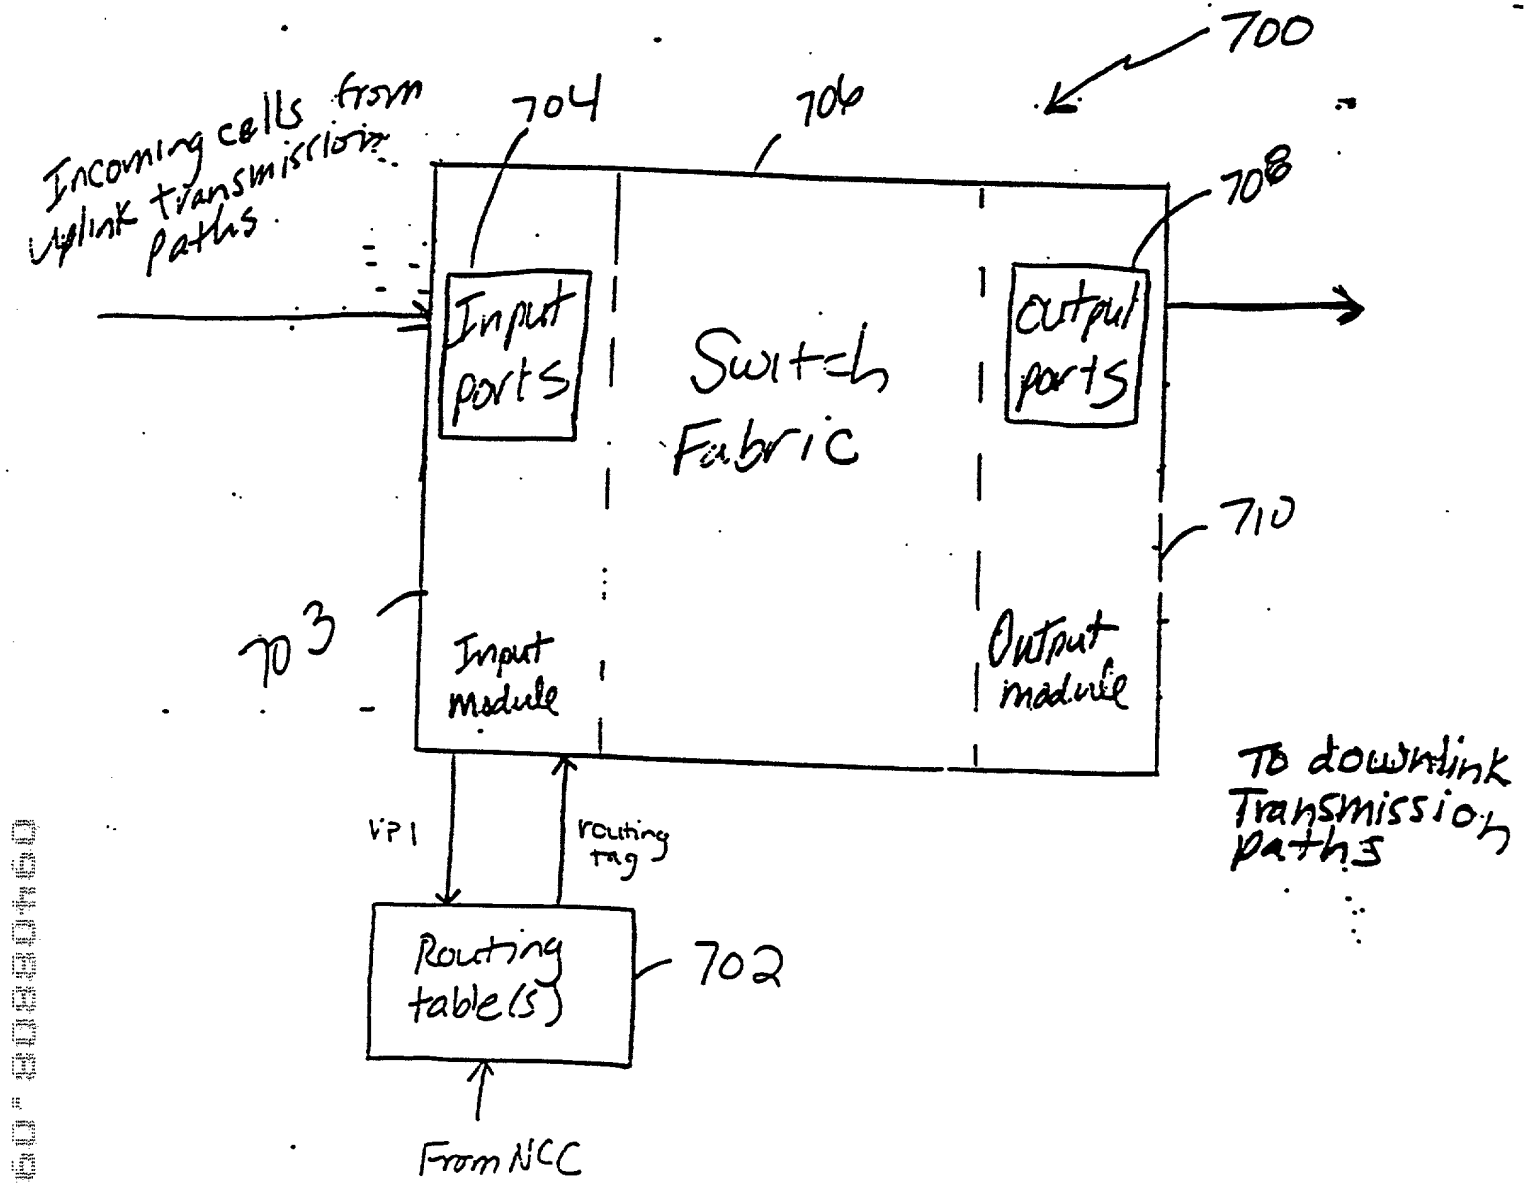 700
704
706
Incoming cells from
uplink transmission
paths
708
Input
ports
Switch
Fabric
Output
ports
710
703
Input
module
Output
module
To downlink
Transmission
paths
VPI
routing
tag
Routing
table(s)
702
From NCC